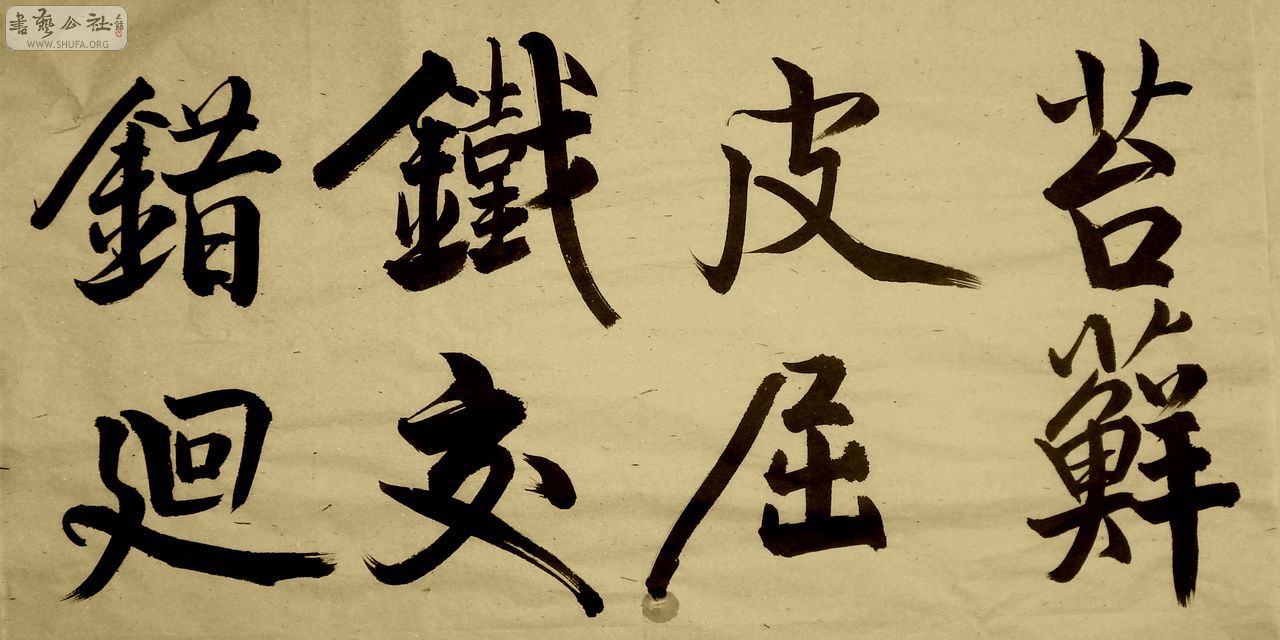 苔蘚
皮屈
鐵交
錯迴
書藝公社
WWW.SHUFA.ORG